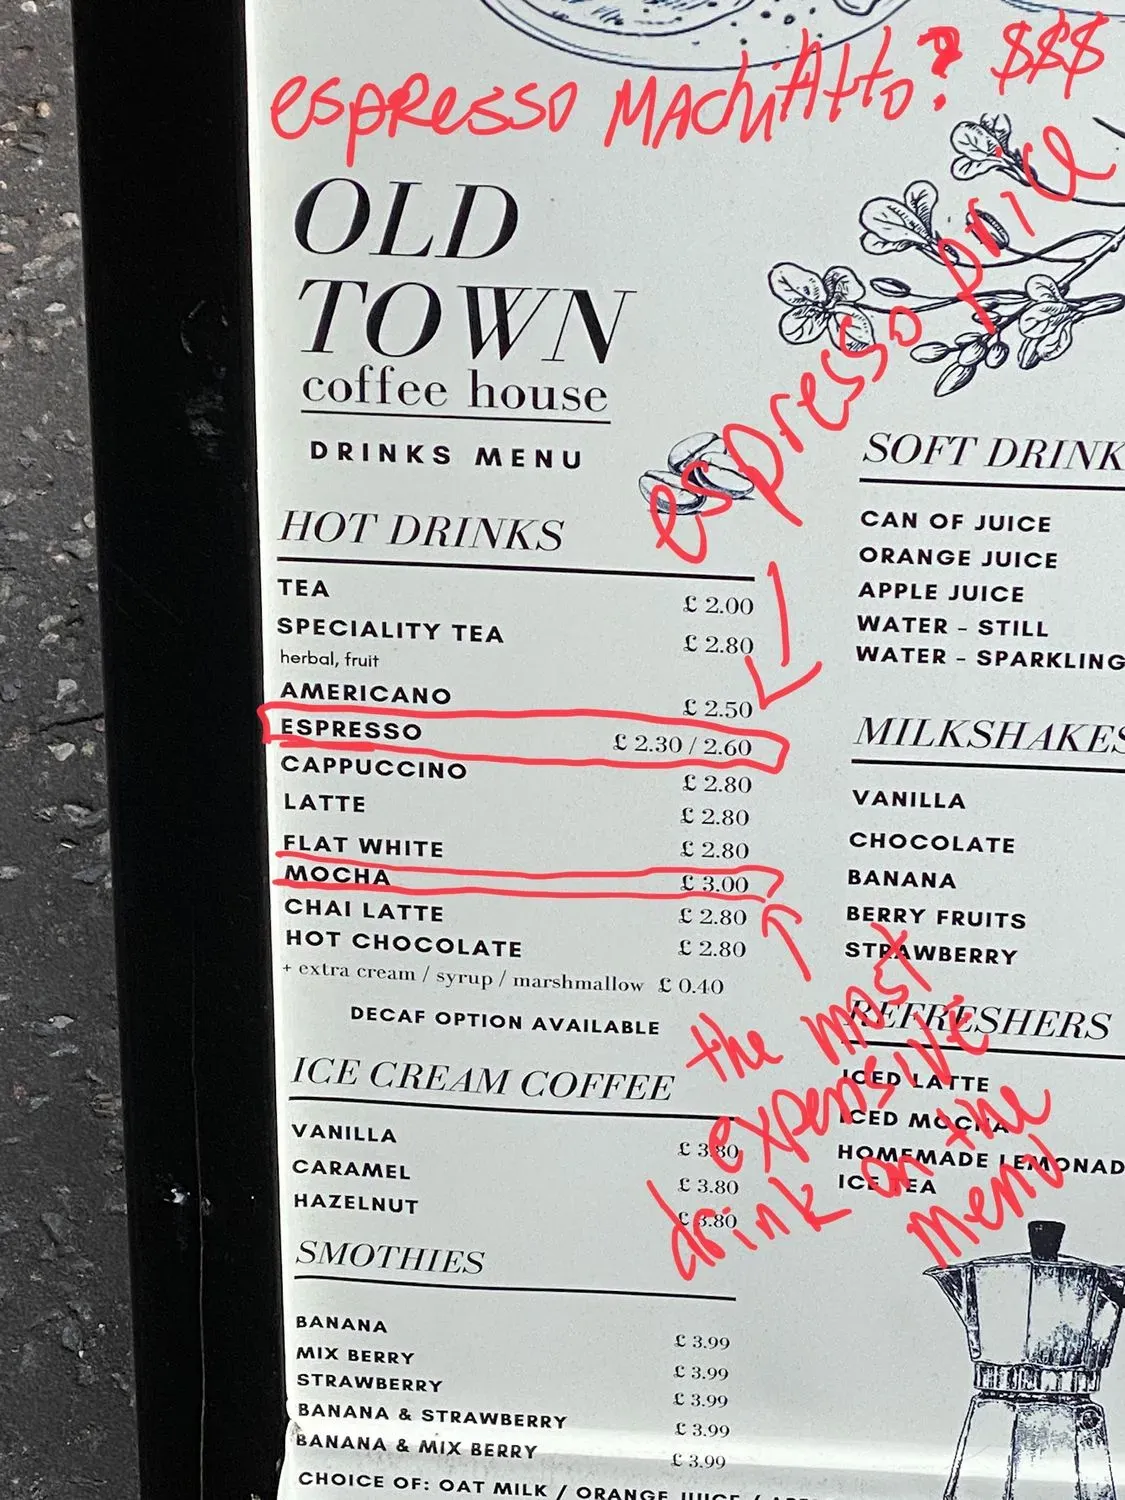 espresso Machiatto? $$$
espresso price
OLD
TOWN
coffee house
DRINKS MENU
HOT DRINKS
TEA £ 2.00
SPECIALITY TEA £ 2.80
herbal, fruit
AMERICANO £ 2.50
ESPRESSO £ 2.30 / 2.60
CAPPUCCINO £ 2.80
LATTE £ 2.80
FLAT WHITE £ 2.80
MOCHA £ 3.00
CHAI LATTE £ 2.80
HOT CHOCOLATE £ 2.80
+ extra cream / syrup / marshmallow £ 0.40
DECAF OPTION AVAILABLE
the most
expensive
drink on the
menu
ICE CREAM COFFEE
VANILLA £ 3.80
CARAMEL £ 3.80
HAZELNUT £ 3.80
SMOTHIES
BANANA £ 3.99
MIX BERRY £ 3.99
STRAWBERRY £ 3.99
BANANA & STRAWBERRY £ 3.99
BANANA & MIX BERRY £ 3.99
CHOICE OF: OAT MILK / ORANGE JUICE /
SOFT DRINK
CAN OF JUICE
ORANGE JUICE
APPLE JUICE
WATER - STILL
WATER - SPARKLING
MILKSHAKES
VANILLA
CHOCOLATE
BANANA
BERRY FRUITS
STRAWBERRY
REFRESHERS
ICED LATTE
ICED MOCHA
HOMEMADE LEMONAD
ICE TEA